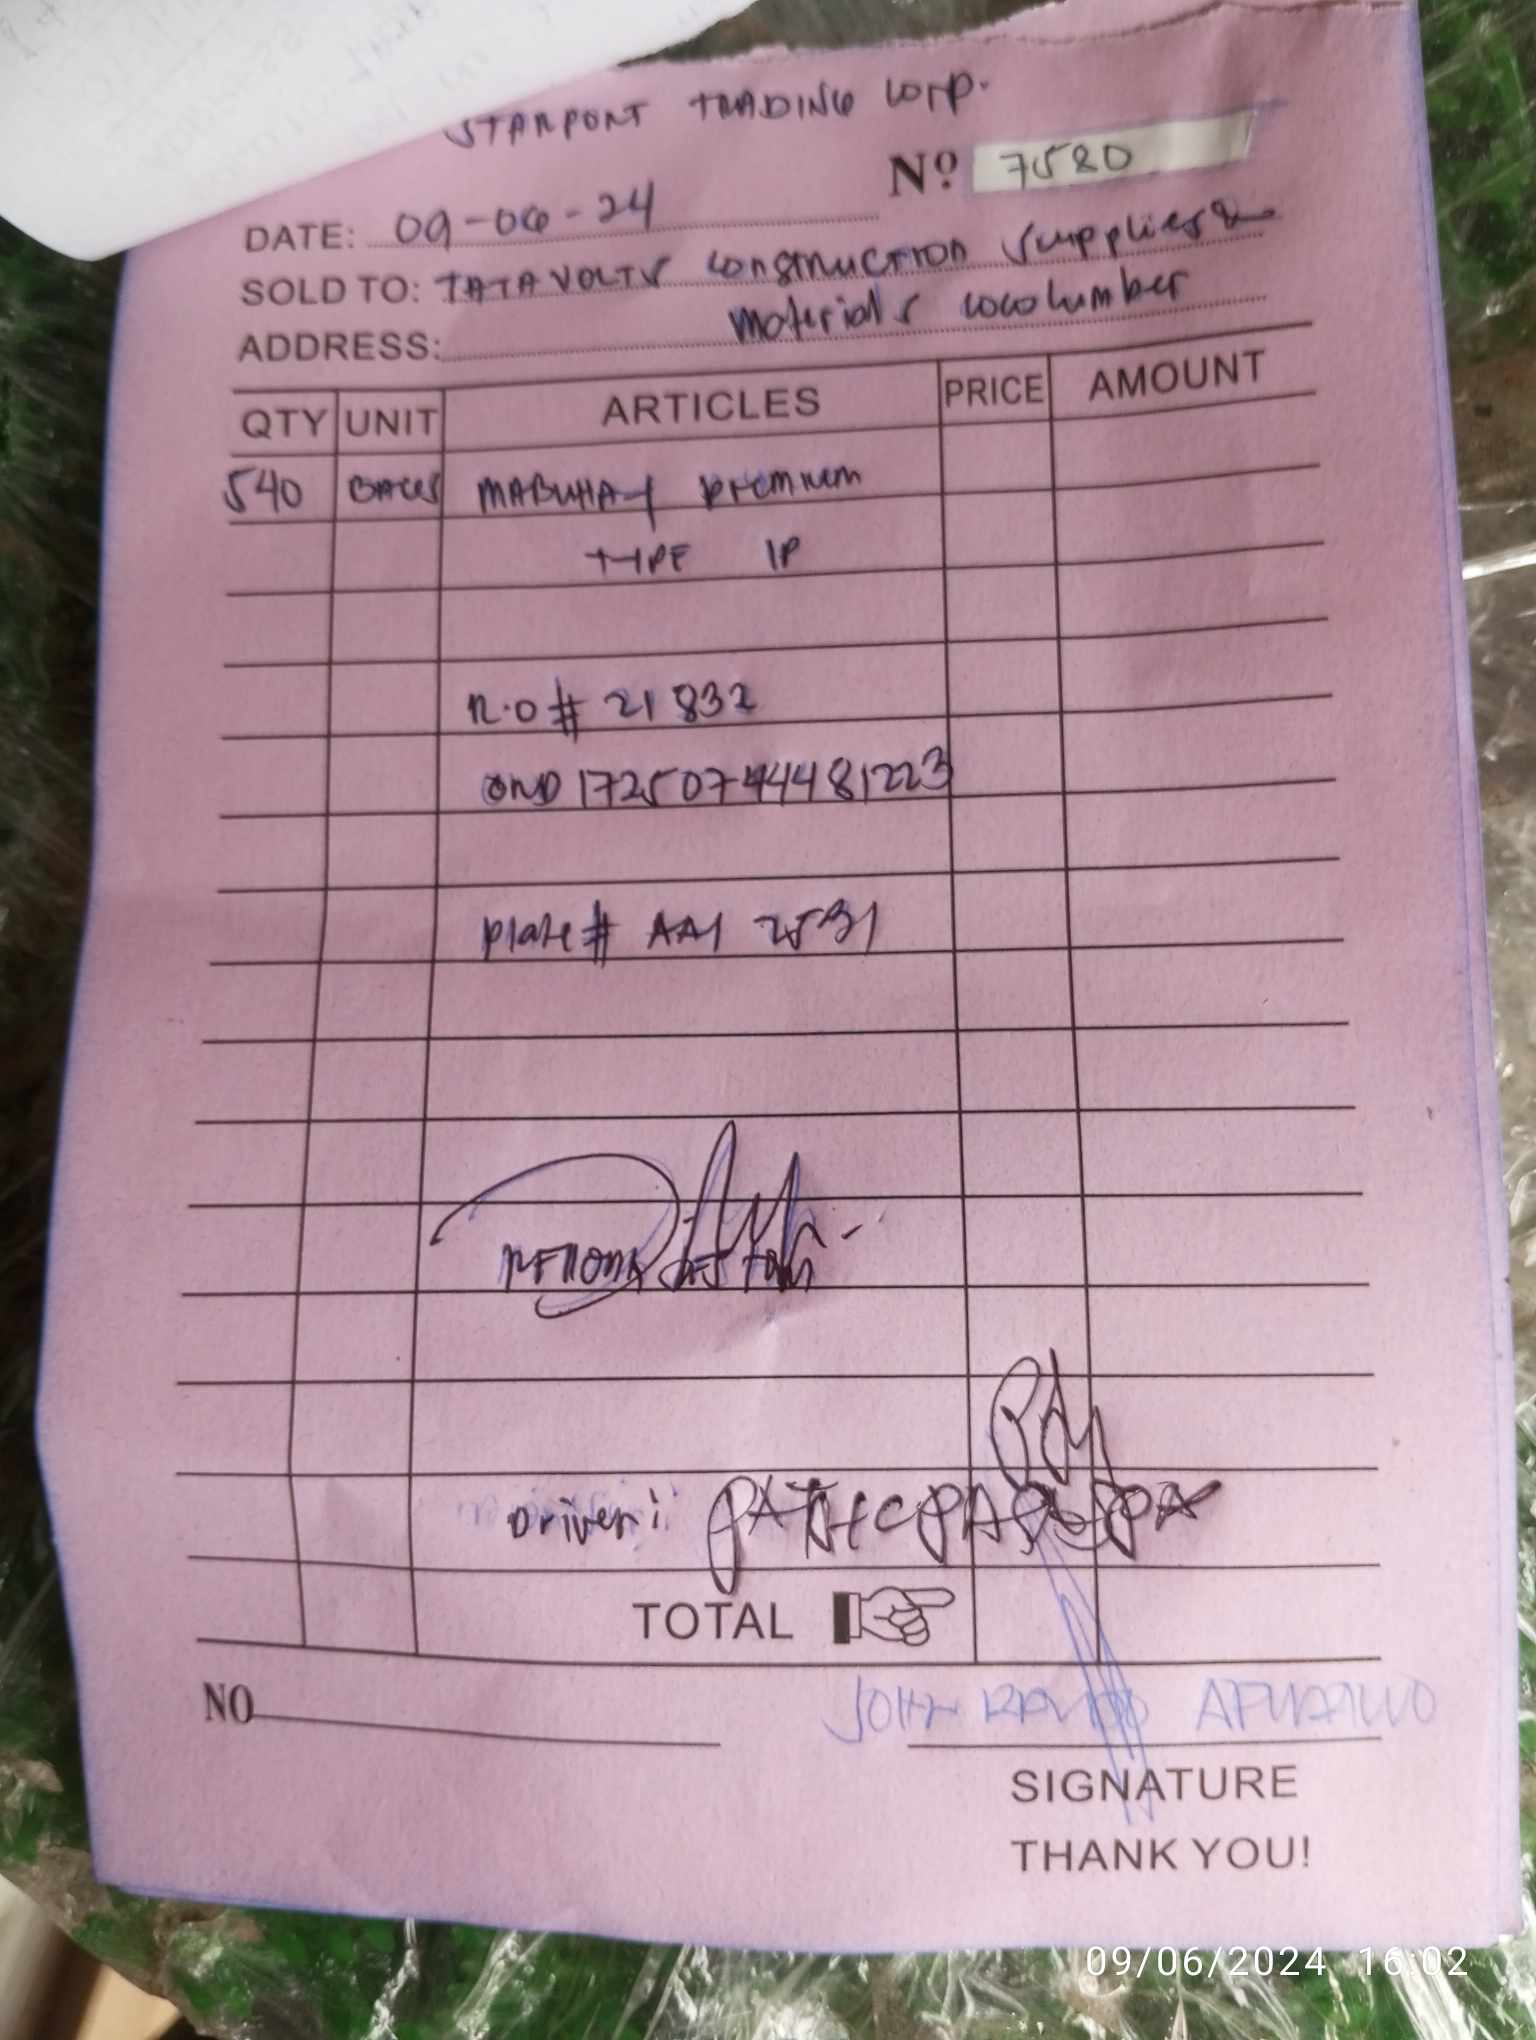 STARPORT TRADING Corp.
Nº 7580
DATE: 09-06-24
SOLD TO: TATAVOLTS construction supplies &
ADDRESS: materials cocolumber
QTY UNIT ARTICLES PRICE AMOUNT
540 BAGS MABUHAY premium
TYPE 1P
R.O # 21832
OND 1725074448 1223
plate # AAI 2531
Driver:
TOTAL
NO
JOHN
SIGNATURE
THANK YOU!
09/06/2024 16:02